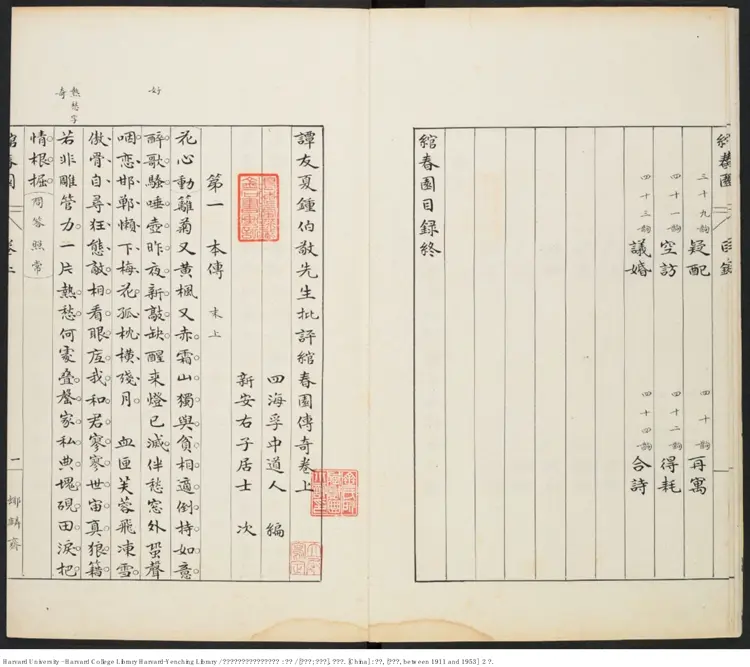 綰春園 目錄
三十九齣 疑配 四十齣 再寓
四十一齣 空訪 四十二齣 得耗
四十三齣 議婚 四十四齣 合詩
綰春園目錄終
譚友夏鍾伯敬先生批評綰春園傳奇卷上
四海孚中道人 編
新安右子居士 次
第一 本傳 末上
花心動籬菊又黃楓又赤霜山獨與貧相適倒持如意
醉歌騷唾壺昨夜新敲缺醒來燈已滅伴愁窓外蛩聲
咽恋邯鄲懶下梅花孤枕橫殘月 血匣芙蓉飛凍雪
傲骨自尋狂態敵相看眼底我和君寥寥世宙真狼籍
若非雕管力一片熱愁何處疊罄家私典塊硯田淚把
情根掘 問答照常
好
熱愁字
奇
綰春園 卷上
一
Harvard University - Harvard College Library Harvard-Yenching Library / ??????????????? : ?? / [???; ???]. ???. [China] : ??, [???, between 1911 and 1953] 2 ?.